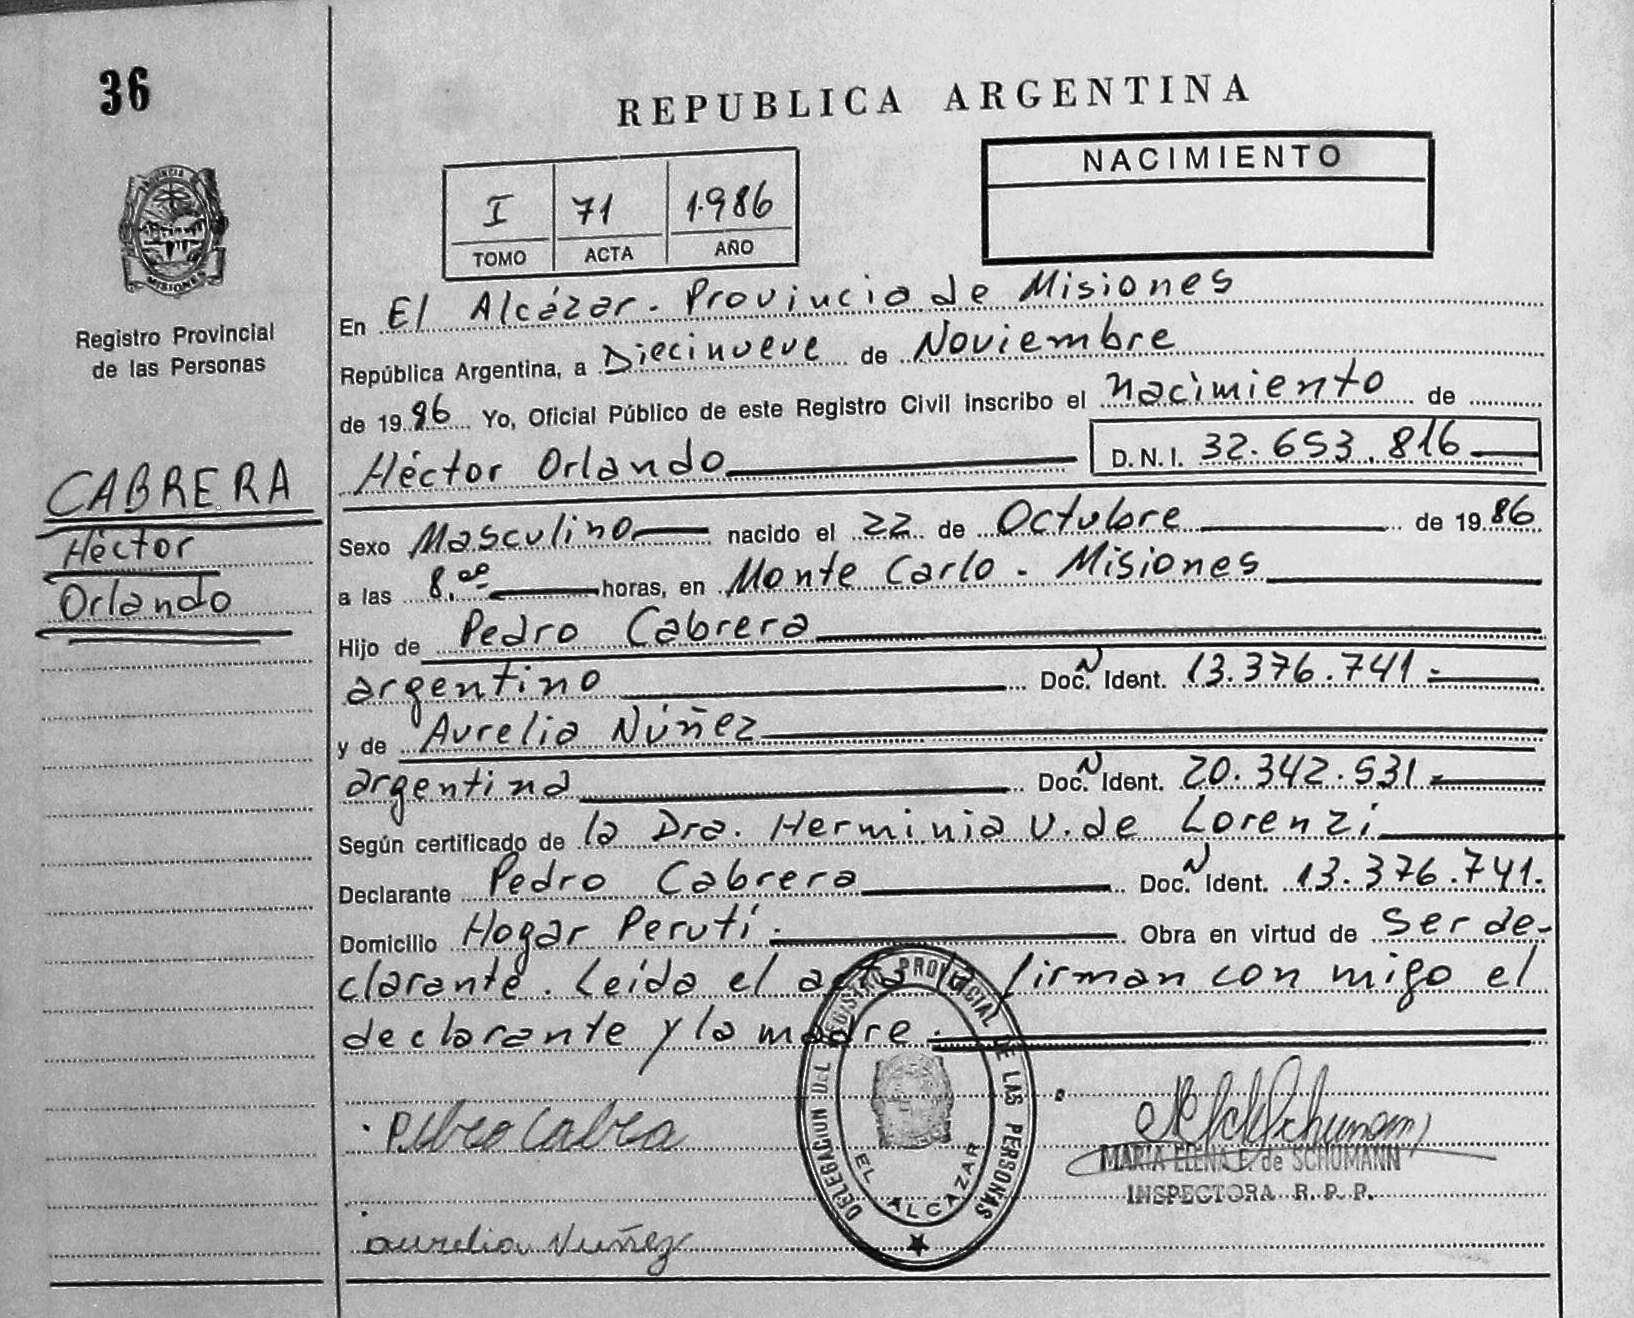 36
REPUBLICA ARGENTINA
PROVINCIA DE
MISIONES
Registro Provincial
de las Personas
I 71 1.986
TOMO ACTA AÑO
NACIMIENTO
En El Alcázar - Provincia de Misiones
República Argentina, a Diecinueve de Noviembre
de 1986 Yo, Oficial Público de este Registro Civil inscribo el nacimiento de
Héctor Orlando D.N.I. 32.653.816
CABRERA
Héctor
Orlando
Sexo Masculino nacido el 22 de Octubre de 1986
a las 8.00 horas, en Monte Carlo - Misiones
Hijo de Pedro Cabrera
argentino Doc. N Ident. 13.376.741.-
y de Aurelia Núñez
argentina Doc. N Ident. 20.342.531-
Según certificado de la Dra. Herminia U. de Lorenzi
Declarante Pedro Cabrera Doc. N Ident. 13.376.741.
Domicilio Hogar Perutí. Obra en virtud de Ser de-
clarante. Leída el acta la firman con migo el
declarante y la madre.
DELEGACION DEL REGISTRO PROVINCIAL DE LAS PERSONAS
EL ALCAZAR
Aurelia Nuñez
MARIA ELENA F. de SCHUMANN
INSPECTORA R. P. P.